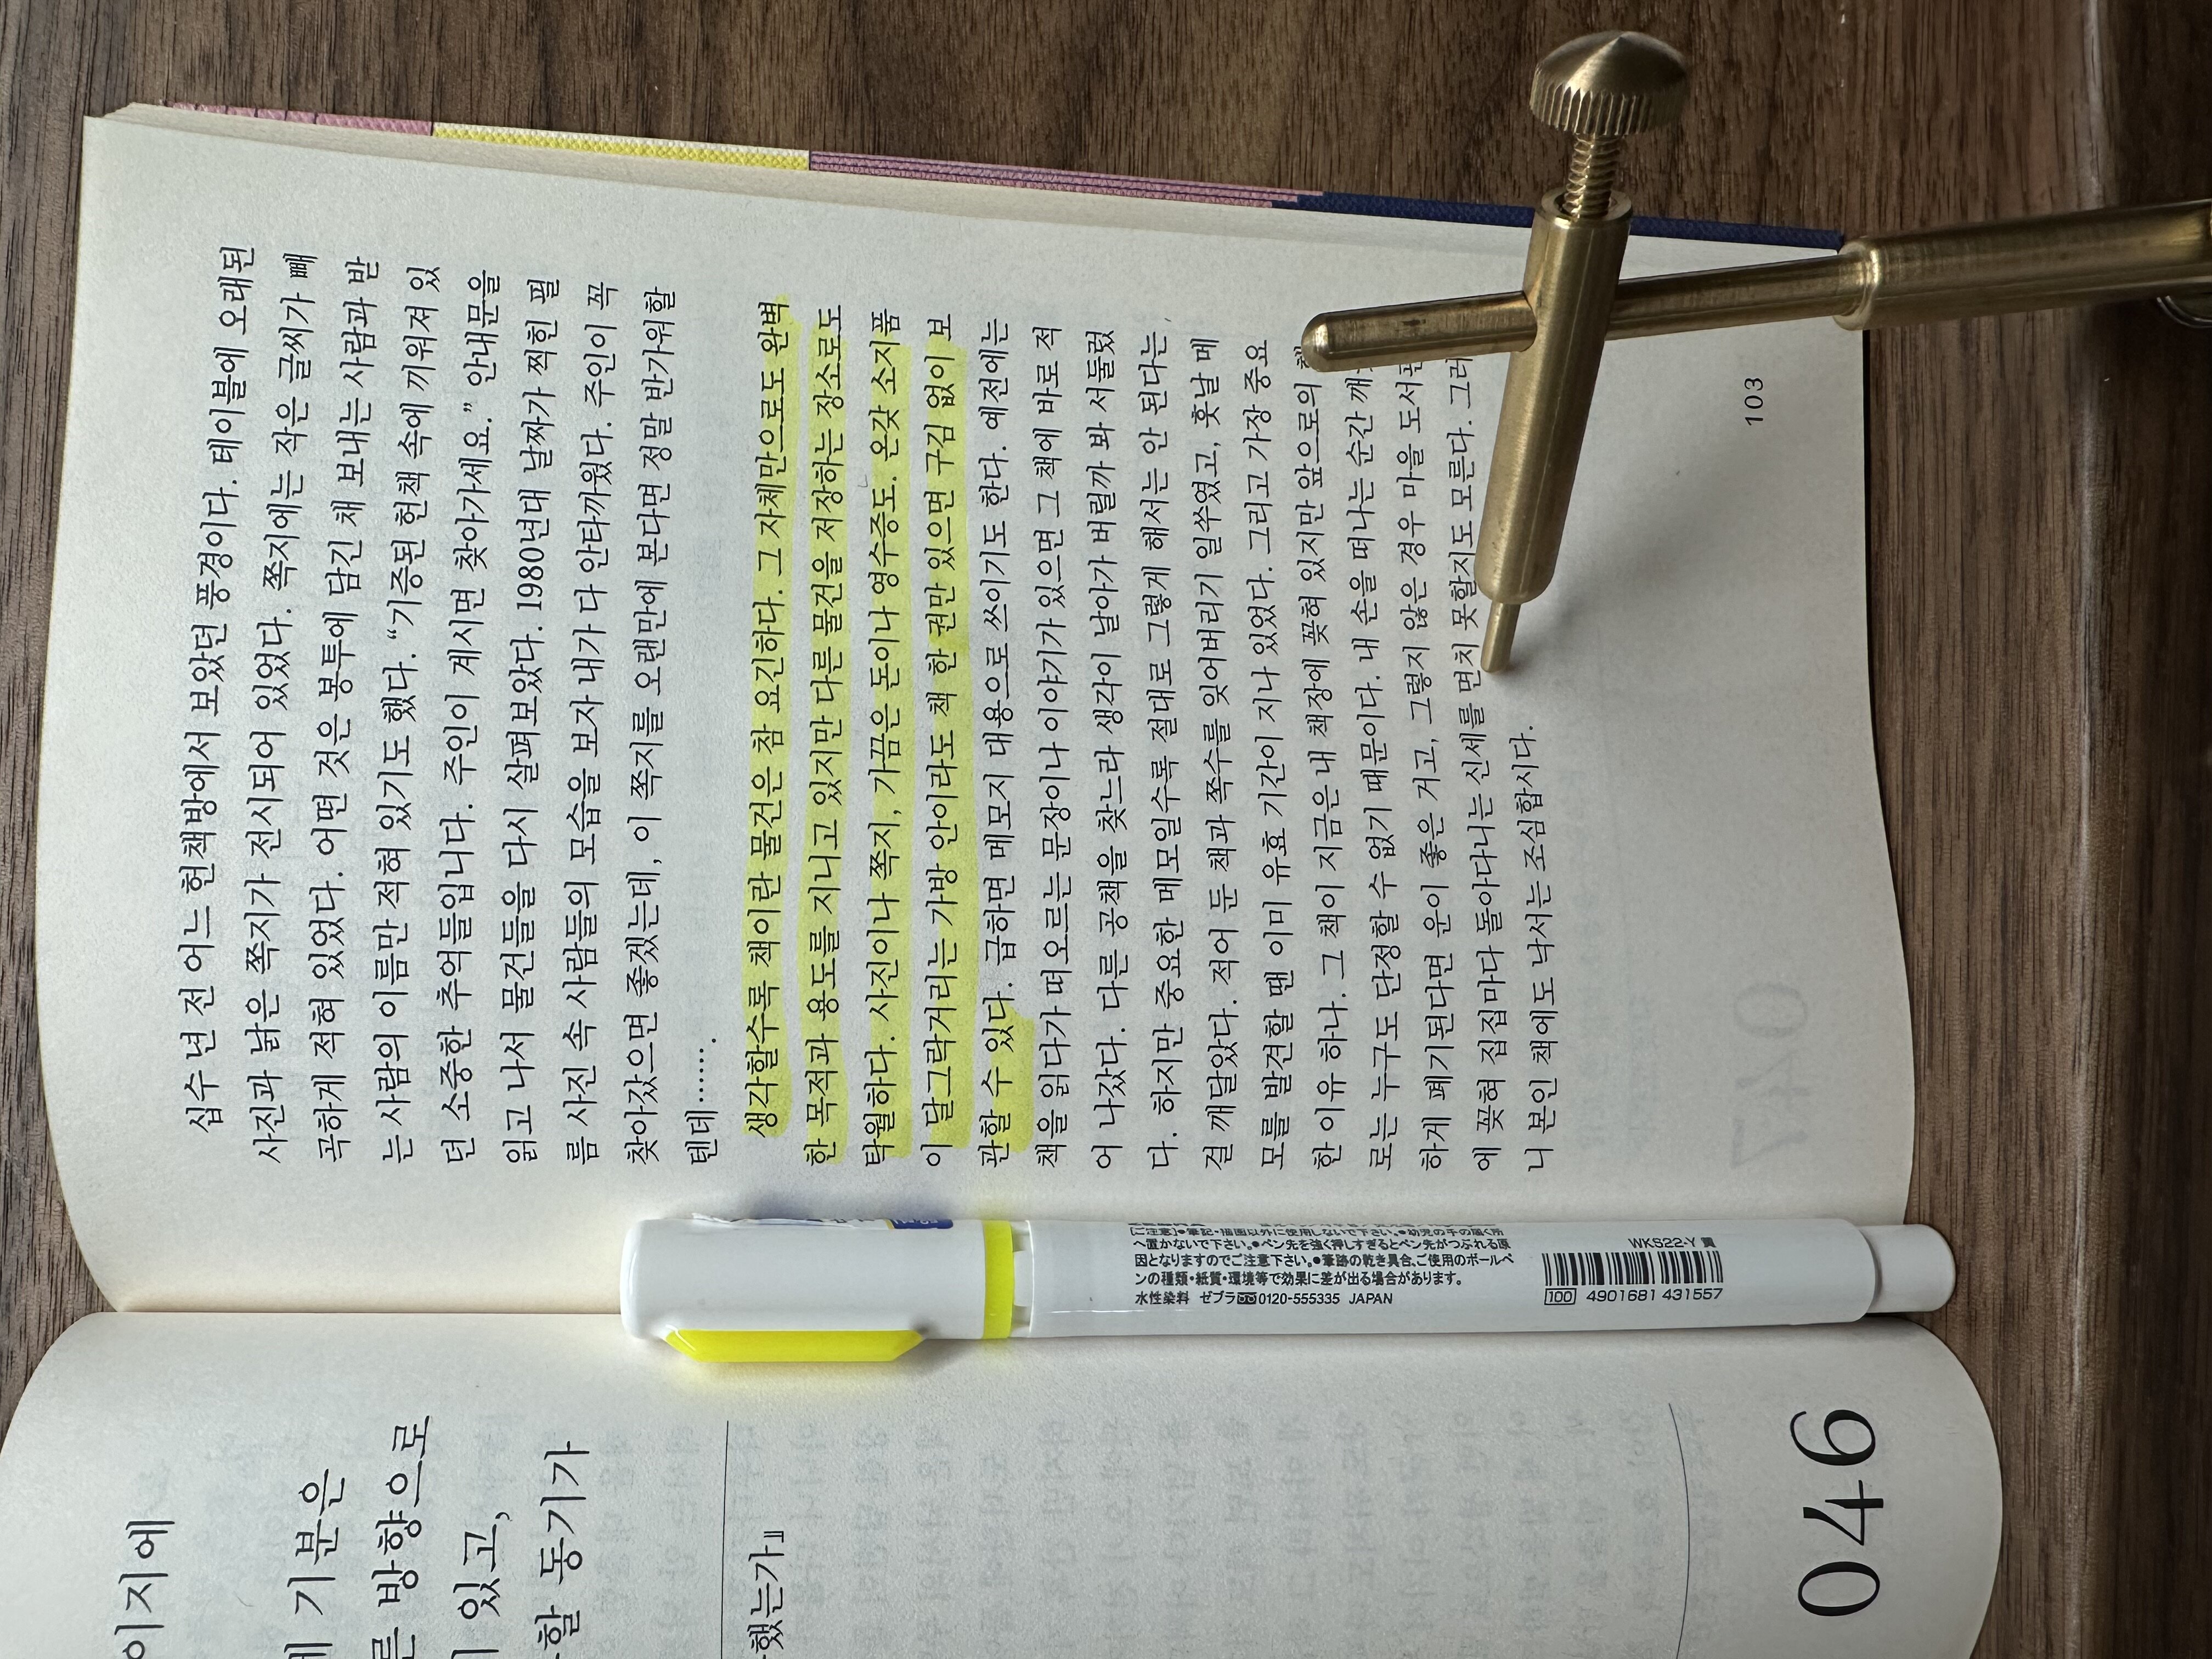 이지에
기분은
른 방향으로
있고,
할 동기가
했는가』
046
십수 년 전 어느 헌책방에서 보았던 풍경이다. 테이블에 오래된
사진과 낡은 쪽지가 전시되어 있었다. 쪽지에는 작은 글씨가 빼
곡하게 적혀 있었다. 어떤 것은 봉투에 담긴 채 보내는 사람과 받
는 사람의 이름만 적혀 있기도 했다. “기증된 헌책 속에 끼워져 있
던 소중한 추억들입니다. 주인이 계시면 찾아가세요.” 안내문을
읽고 나서 물건들을 다시 살펴보았다. 1980년대 날짜가 찍힌 필
름 사진 속 사람들의 모습을 보자 내가 다 안타까웠다. 주인이 꼭
찾아갔으면 좋겠는데, 이 쪽지를 오랜만에 본다면 정말 반가워할
텐데…….
생각할수록 책이란 물건은 참 요긴하다. 그 자체만으로도 완벽
한 목적과 용도를 지니고 있지만 다른 물건을 저장하는 장소로도
탁월하다. 사진이나 쪽지, 가끔은 돈이나 영수증도. 온갖 소지품
이 달그락거리는 가방 안이라도 책 한 권만 있으면 구김 없이 보
관할 수 있다. 급하면 메모지 대용으로 쓰이기도 한다. 예전에는
책을 읽다가 떠오르는 문장이나 이야기가 있으면 그 책에 바로 적
어 나갔다. 다른 공책을 찾느라 생각이 날아가 버릴까 봐 서둘렀
다. 하지만 중요한 메모일수록 절대로 그렇게 해서는 안 된다는
걸 깨달았다. 적어 둔 책과 쪽수를 잊어버리기 일쑤였고, 훗날 메
모를 발견할 땐 이미 유효 기간이 지나 있었다. 그리고 가장 중요
한 이유 하나. 그 책이 지금은 내 책장에 꽂혀 있지만 앞으로의
로는 누구도 단정할 수 없기 때문이다. 내 손을 떠나는 순간
하게 폐기된다면 운이 좋은 거고, 그렇지 않은 경우 마을
에 꽂혀 집집마다 돌아다니는 신세를 면치 못할지도 모른다.
니 본인 책에도 낙서는 조심합시다.
103
[ご注意]●筆記・描画以外に使用しないで下さい。●幼児の手の届く所
へ置かないで下さい。●ペン先を強く押しすぎるとペン先がつぶれる原
因となりますのでご注意下さい。●筆跡の乾き具合、ご使用のボールペ
ンの種類・紙質・環境等で効果に差が出る場合があります。
水性染料 ゼブラ 0120-555335 JAPAN
WKS22-Y 黄
100 4901681 431557